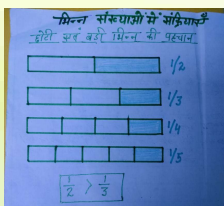 भिन्न संख्याओं में संक्रियाएँ
छोटी एवं बड़ी भिन्न की पहचान
1/2
1/3
1/4
1/5
1/2 > 1/3